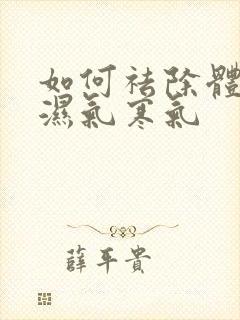 如何祛除體
濕氣寒氣
薛平貴